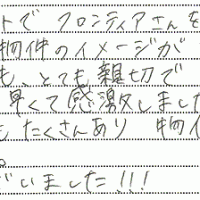 トで フロンティアさんを
物件のイメージが
も、とても親切で
早くて感激しました
もたくさんあり 物件
。
ざいました!!!